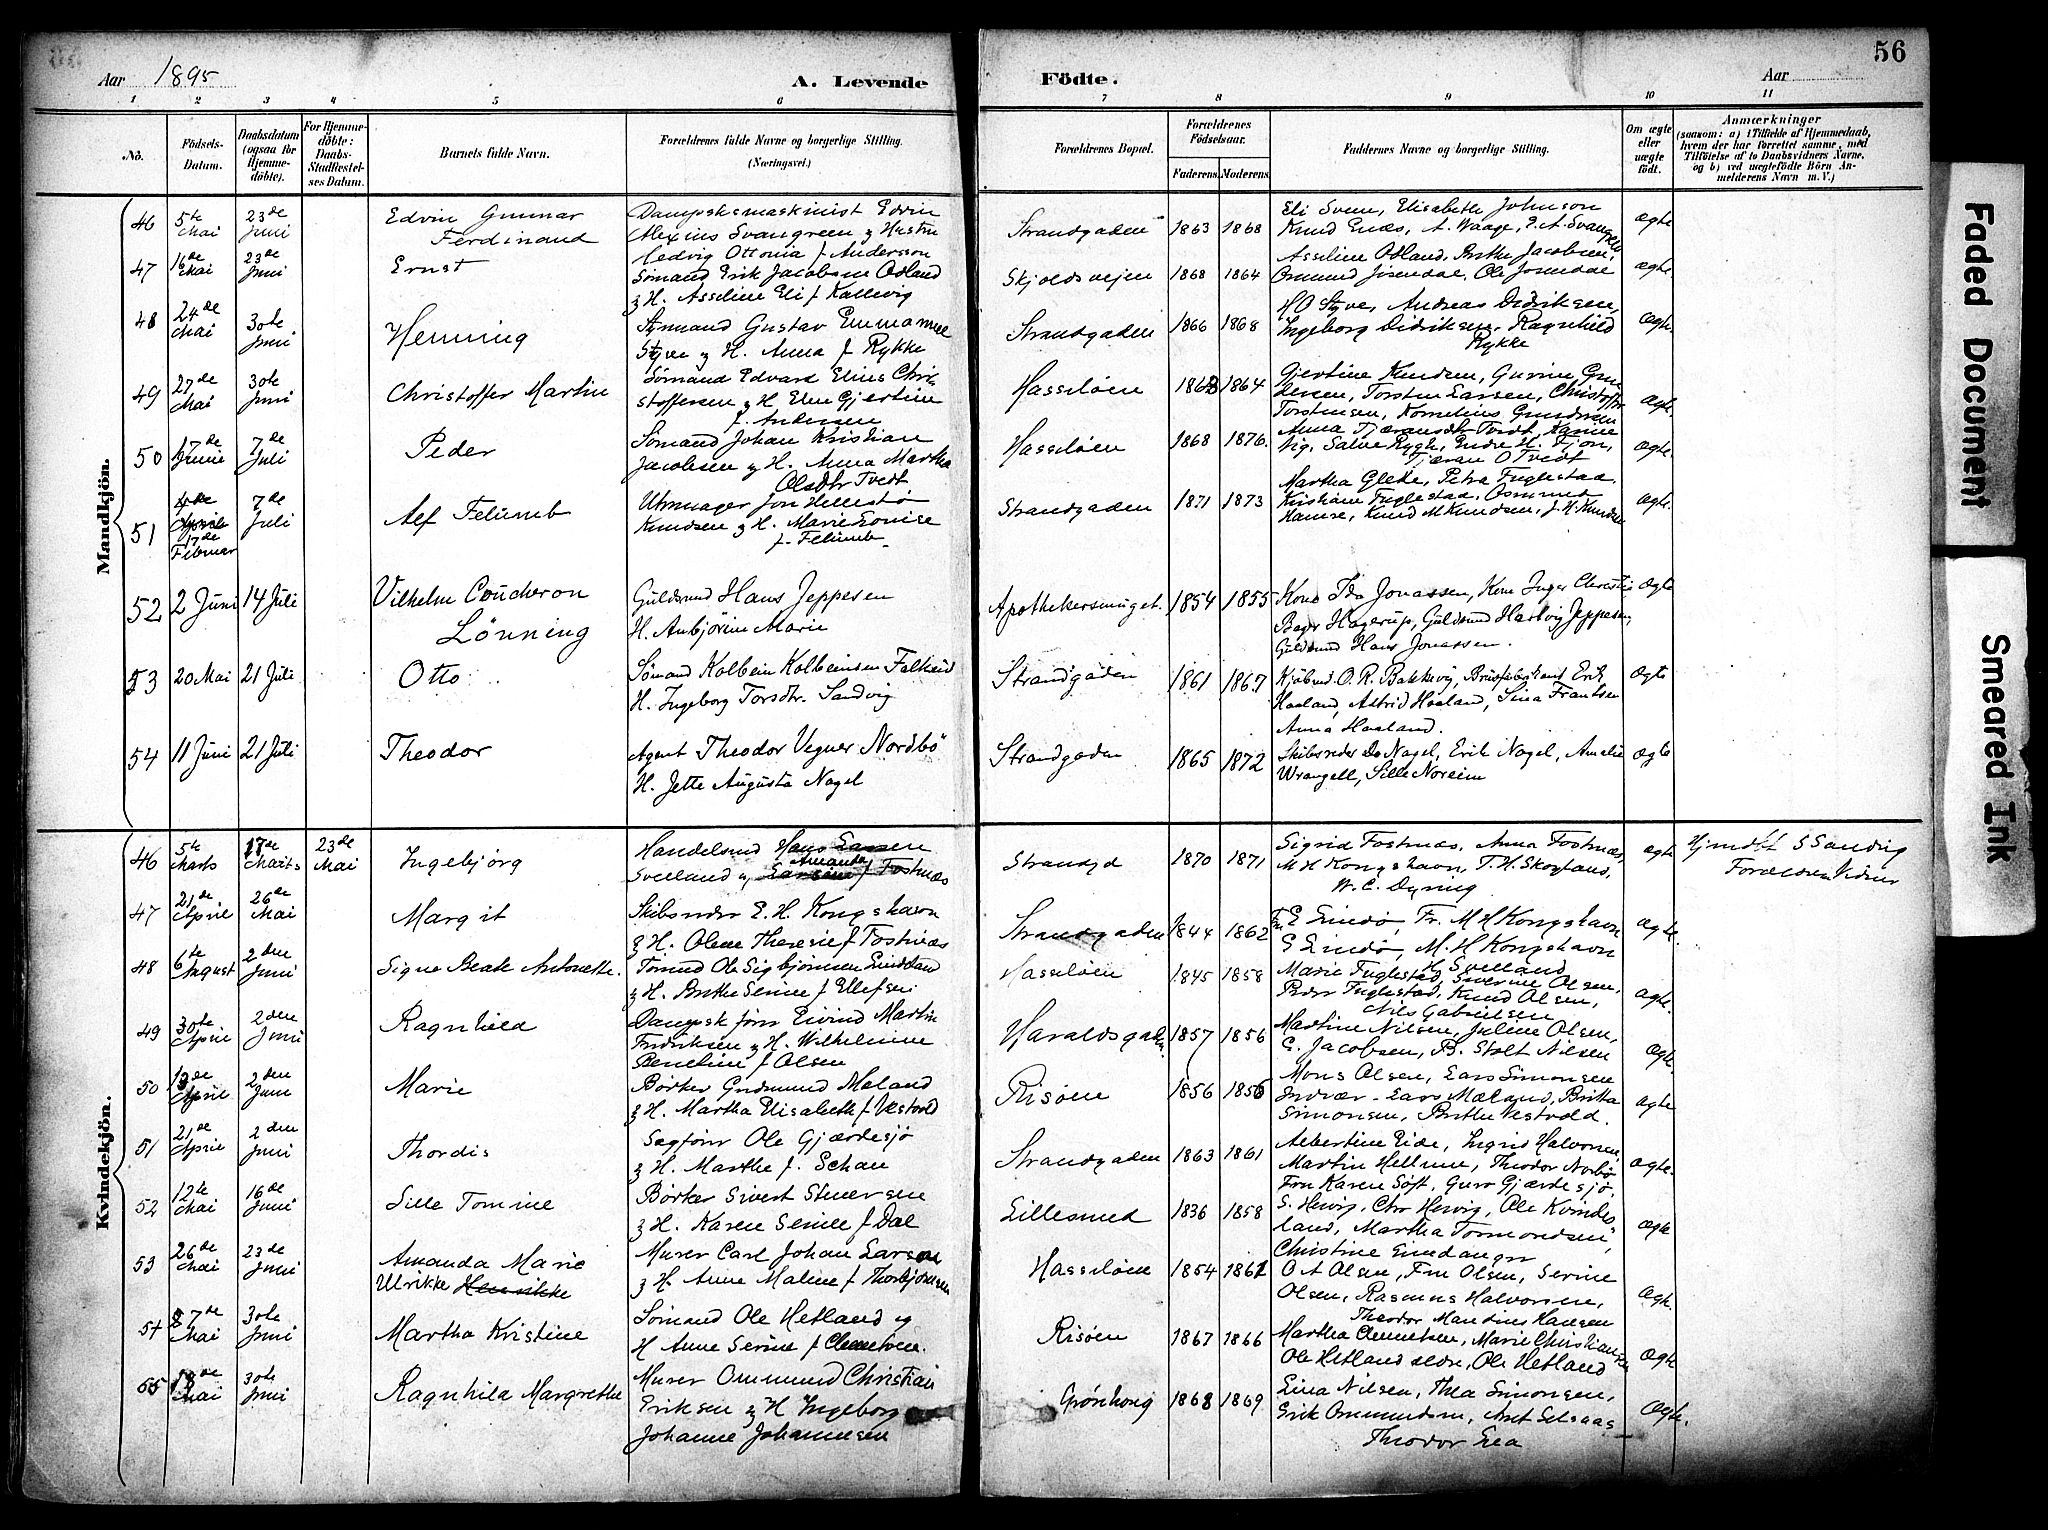 56
Aar 1895
A. Levende
Födte.
Aar
1 2 3 4 5 6 7 8 9 10 11
No.
Födsels-Datum.
Daabsdatum (ogsaa for Hjemme-döbte).
For Hjemme-döbte: Daabs-Stadfæstel-ses Datum.
Barnets fulde Navn.
Forældrenes fulde Navne og borgerlige Stilling. (Næringsvei.)
Forældrenes Bopæl.
Forældrenes Födselsaar.
Faderens. Moderens.
Faddernes Navne og borgerlige Stilling.
Om ægte eller uægte födt.
Anmærkninger
(saasom: a) i Tilfælde af Hjemmedaab, hvem der har forrettet samme, med Tilföielse af to Daabsvidners Navne, og b) ved uægtefödte Börn An-melderens Navn m. V.)
Mandkjön.
46 5te Mai 23de Juni
Edvin Gunnar
Ferdinand
Dampskmaskinist Edvin
Alexius Svangreen & Hustru
Hedvig Ottonia f Andersson
Strandgaden 1863 1868
Eli Svem, Elisabeth Johnson
Knud Enæs, A. Waage, E. A. Svangren
ægte
47 16de Mai 23de Juni
Ernst
Sömand Erik Jacobsen Odland
& H. Asseline Eli f Kallevig
Skjoldsvejen 1868 1864
Asseline Odland, Berthe Jacobsen,
Ommund Jösendal, Ole Jösendal
ægte
48 24de Mai 30te Juni
Henning
Styrmand Gustav Emmanuel
Styve & H. Anna f Rykke
Strandgaden 1866 1868
H O Styve, Andreas Didriksen,
Ingeborg Didriksen, Ragnhild
Rykke
Ægte
49 27de Mai 30te Juni
Christoffer Martin
Sömand Edvard Elius Chri-
stoffersen & H Elen Gjertine
f. Andersen
Hasselöen 1863 1864
Gjertine Knudsen, Gurine Gun
dersen, Torsten Larsen, Christoffer
Torstensen, Kornelius Gundersen
Ægte.
50 17de Juni 7de Juli
Peder
Sömand Johan Kristian
Jacobsen & H. Anna Martha
Olsdtr Tvedt
Hasselöen 1868 1876.
Anna Tjæransdtr Tvedt, Agnue
Vig, Salve Rygh, Endre H. Fjon,
Tjæran O Tvedt
Ægte.
51 4de April 17de Februar 7de Juli
Alf Felumb
Uhrmager Jon Hellestö
Knudsen & H. Marie Louise
f. Felumb
Strandgaden 1871 1873
Martha Glette, Petra Fuglestad
Kristiane Fuglestad, Osmund
Hamre, Knud M Knudsen, J. H. Knudsen
ægte.
52 2 Juni 14 Juli
Vilhelm Coucheron
Lönning
Guldsmd Hans Jeppesen
H. Anbjörine Marie
Apothekersmuget. 1854 1855
Kone Ida Jonassen, Kone Inger Christie
Bager Hagerup, Guldsmd Hartvig Jeppesen,
Guldsmd Hans Jonassen.
Ægte
53 20 Mai 21 Juli
Otto
Sömand Kolbein Kolbeinsen Falkeid
H. Ingeborg Torsdtr. Sandvig
Strandgaden 1861 1867
Kjöbmd. O. R. Bakkevig, Brusfabrikand Erik
Haaland, Astrid Haaland, Sina Frantsen
Anna Haaland.
ægte
54 11 Juni 21 Juli
Theodor
Agent Theodor Vegner Nordbö
H. Jette Augusta Nagel
Strandgaden 1865 1872
Skibsreder Do Nagel, Erik Nagel, Amalie
Wrangell, Sille Noreim
ægte
Kvindekjön.
46 5te Marts 17de Marts 23de Mai
Ingebjörg
Handelsmd Hans Larsen
Svelland & Larsine Amanda f Fostnæs
Strandgd 1870 1871
Sigrid Fostnæs, Anna Fostnæs,
M H Kongshavn, T. H. Skogland,
W. C. Dyring
ægte
Hjmdöbt S Sandvig
Forældren Vidner
47 21de April 26de Mai
Margit
Skibsreder E. H. Kongshavn
& H. Olene Therese f Fostnæs
Strandgaden 1844 1862
Fru E Lindö, Fr. M H Kongshavn
E Lindö, M. H Kongshavn
H Svelland
ægte.
48 6te August 2den Juni
Signe Beate Antonette.
Tömmd Ole Sigbjörnsen Lindeland
& H. Berthe Serine f Ellefsen
Hasselöen 1845 1858
Marie Fuglestad, Severine Olsen,
Peder Fuglestad, Knud Olsen,
Nils Gabrielsen
ægte.
49 30te April 2den Juni
Ragnhild
Dampsk förer Eivind Martin
Fredriksen & H. Wilhelmine
Beneline f Olsen
Haraldsgaden 1857 1856
Martine Nilsen, Juline Olsen,
G. Jacobsen, B. Stolt Nilsen
Ægte.
50 13de April 2den Juni
Marie
Börker Gudmund Mæland
& H. Martha Elisabeth f Vestvold
Risöen 1856 1856
Mons Olsen, Lars Simonsen
Indvær, Lars Mæland, Britta
Simonsen, Berthe Vestvold.
ægte
51 21de April 2den Juni
Thordis
Sagförer Ole Gjærdesjö
& H. Marthe f. Schau
Strandgaden 1863 1861
Albertine Eide, Ingrid Halvorsen,
Martin Hellune, Theodor Norbö
Fru Karen Söft, Guro Gjærdesjö,
ægte.
52 12te Mai 16de Juni
Sille Tomine
Börker Sivert Steuersen
& H. Karen Serine f Dal
Lillesund 1836 1858
S. Hervig, Chr Hervig, Ole Kvindes-
land, Martha Tormondsen,
Christine Lindanger
ægte
53 26de Mai 23de Juni
Amanda Marie
Ulrikke Henrikke
Murer Carl Johan Larsen
& H. Anne Maline f Thorbjörnsen
Hasselöen 1854 1861
O A Olsen, Fru Olsen, Serine
Olsen, Rasmus Halvorsen,
Theodor Mandius Hansen
Ægte.
54 27de Mai 30te Juni
Martha Kristine
Sömand Ole Hetland &
H Anne Serine f Clemetsen.
Risöen 1867 1866
Martha Clemetsen, Marie Christiansen
Ole Hetland ældre, Ole Hetland
Ægte
55 18de Mai 30te Juni
Ragnhild Margrethe
Murer Ommund Christian
Eriksen & H Ingeborg
Johanne Johannesen
Grönhoug 1868 1869
Lina Nilsen, Thea Simonsen,
Erik Ommundsen, Anet Selsaas
Theodor Lea
Ægte.
Faded Document
Smeared Ink